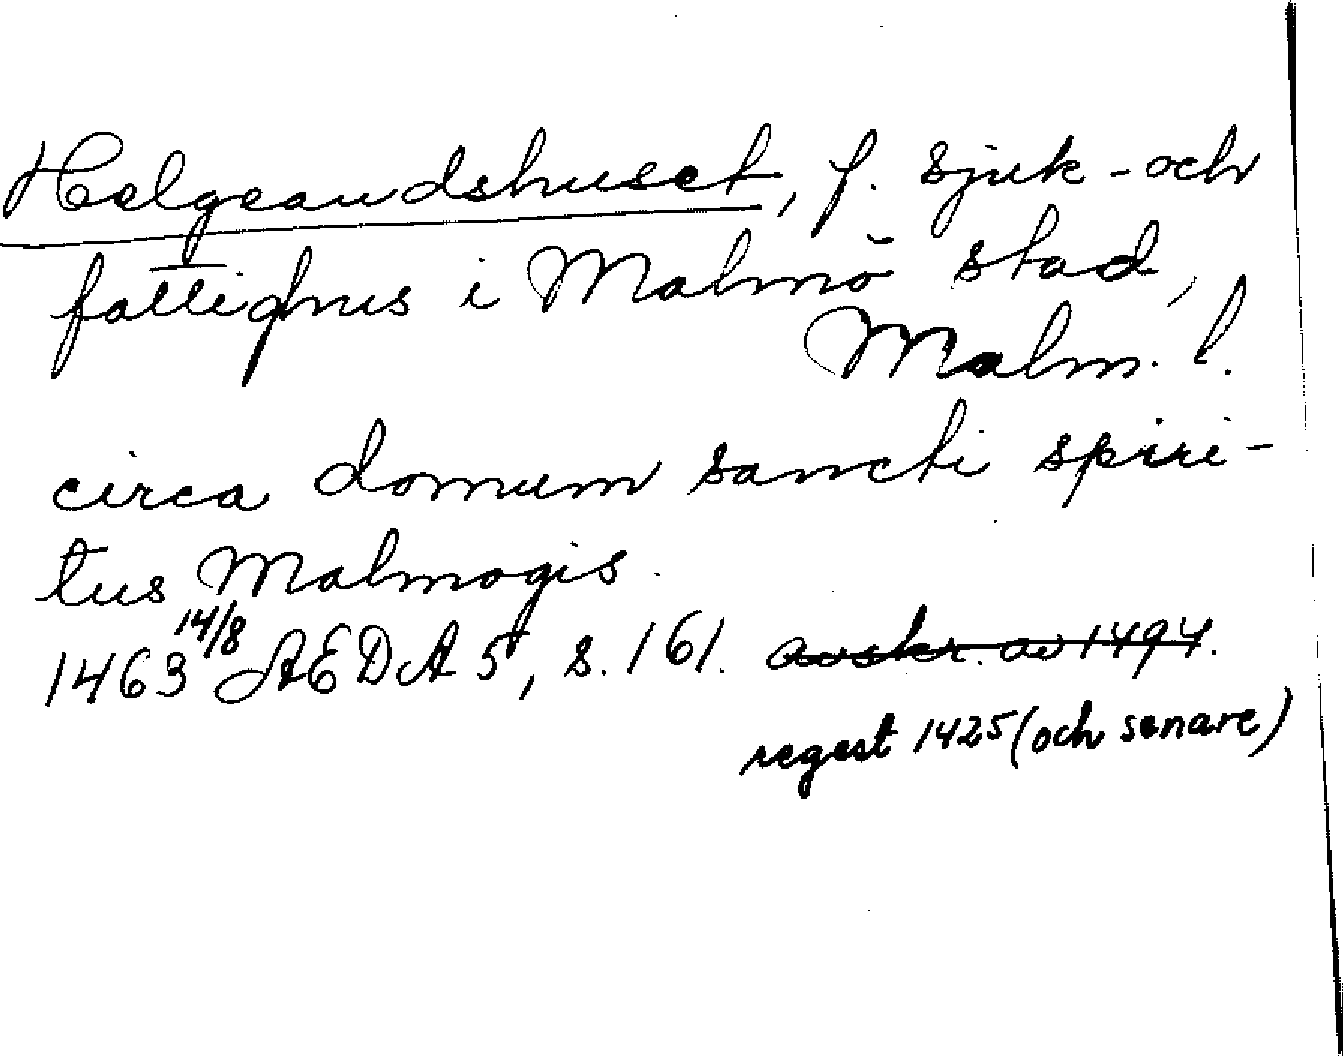 Helgeandshuset, f. sjuk- och
fattighus i Malmö stad,
Malm. l.
circa domum sancti spiri-
tus Malmogis.
1463 14/8 AEDA 5, s. 161. avskr. av 1494.
regest 1425 (och senare)